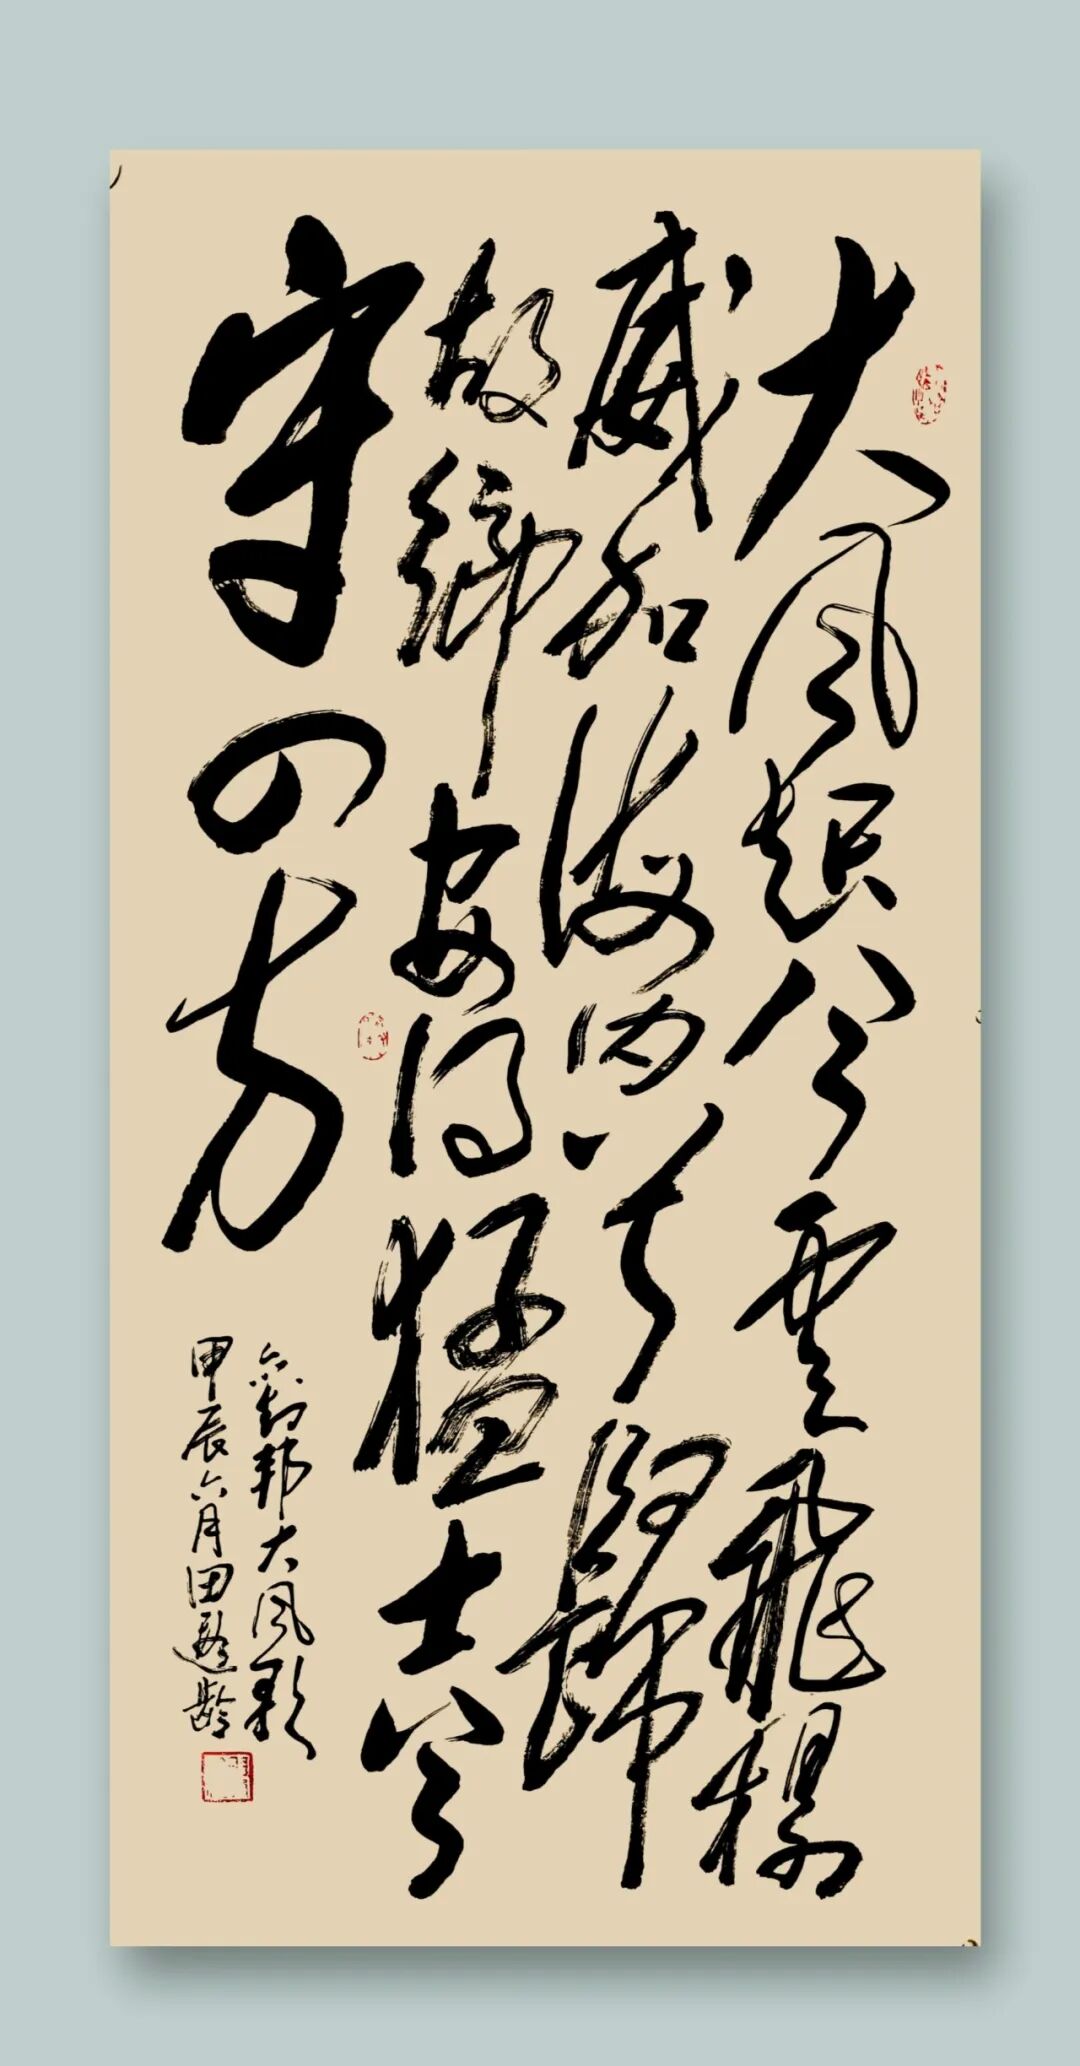 大风起兮雲飛揚
威加海内兮歸
故鄉安得猛士兮
守四方
劉邦大风歌
甲辰六月田遐龄